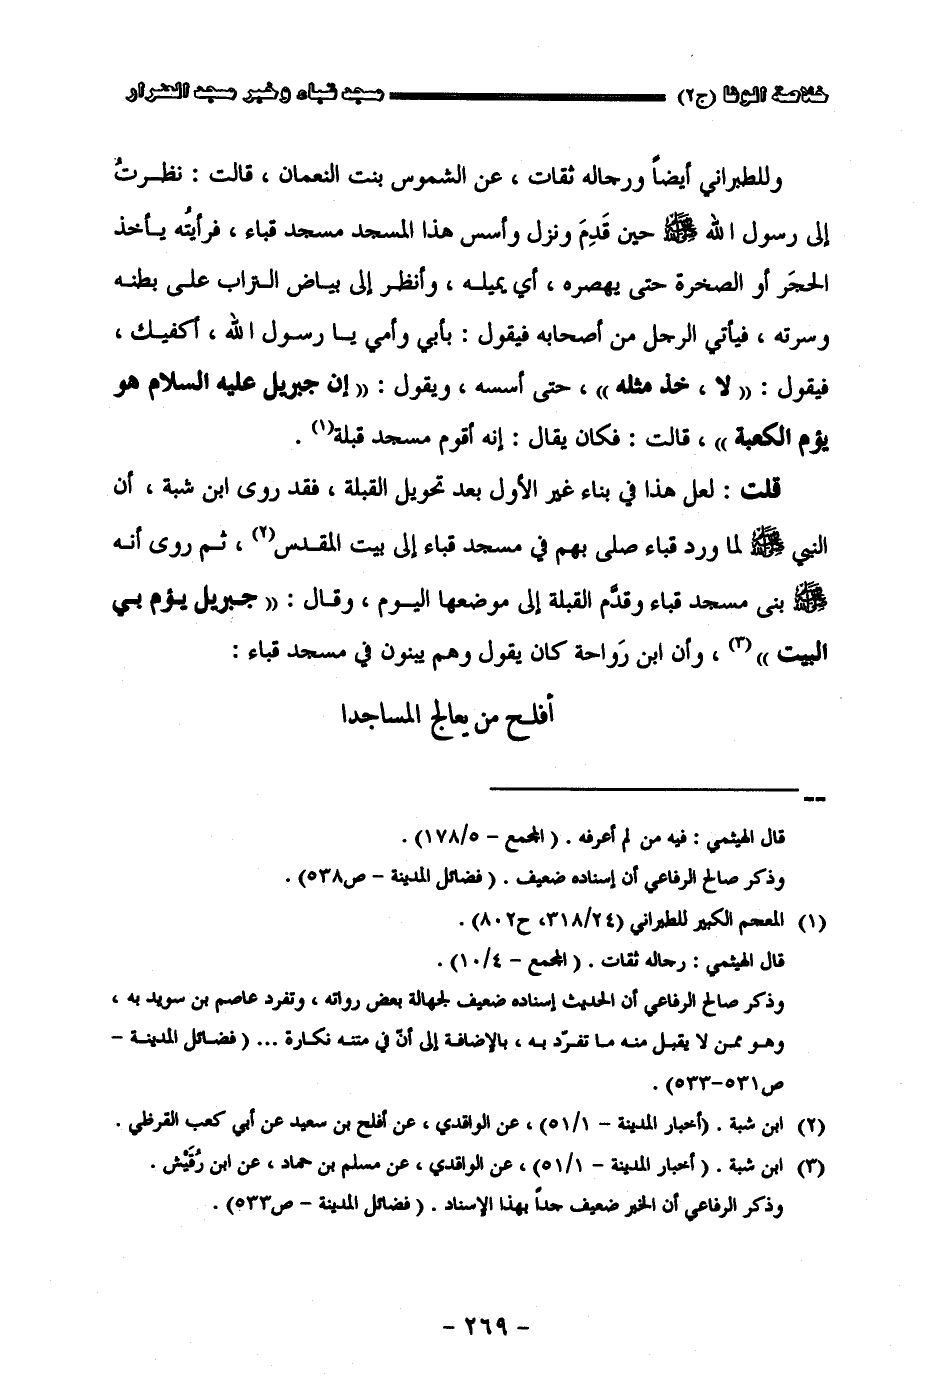 خلاصة الوفا (ج٢) مسجد قباء وخبر مسجد الضرار
وللطبراني أيضاً ورجاله ثقات ، عن الشموس بنت النعمان ، قالت : نظرتُ
إلى رسول الله ﷺ حين قَدِمَ ونزل وأسس هذا المسجد مسجد قباء ، فرأيتُه يأخذ
الحجَر أو الصخرة حتى يهصره ، أي يميله ، وأنظر إلى بياض التراب على بطنه
وسرته ، فيأتي الرجل من أصحابه فيقول : بأبي وأمي يا رسول الله ، أكفيك ،
فيقول : « لا ، خذ مثله » ، حتى أسسه ، ويقول : « إن جبريل عليه السلام هو
يؤم الكعبة » ، قالت : فكان يقال : إنه أقوم مسجد قبلة(١) .
قلت : لعل هذا في بناء غير الأول بعد تحويل القبلة ، فقد روى ابن شبة ، أن
النبي ﷺ لما ورد قباء صلى بهم في مسجد قباء إلى بيت المقدس(٢) ، ثم روى أنه
ﷺ بنى مسجد قباء وقدَّم القبلة إلى موضعها اليوم ، وقال : « جبريل يؤم بي
البيت »(٣) ، وأن ابن رَواحة كان يقول وهم يبنون في مسجد قباء :
أفلح من يعالج المساجدا
قال الهيثمي : فيه من لم أعرفه . ( المجمع – ١٧٨/٥) .
وذكر صالح الرفاعي أن إسناده ضعيف . ( فضائل المدينة – ص٥٣٨) .
(١) المعجم الكبير للطبراني (٣١٨/٢٤، ح٨٠٢) .
قال الهيثمي : رجاله ثقات . ( المجمع – ١٠/٤) .
وذكر صالح الرفاعي أن الحديث إسناده ضعيف لجهالة بعض رواته ، وتفرد عاصم بن سويد به ،
وهو ممن لا يقبل منه ما تفرّد به ، بالإضافة إلى أنّ في متنه نكارة ... ( فضائل المدينة –
ص٥٣١-٥٣٣) .
(٢) ابن شبة . (أخبار المدينة – ٥١/١) ، عن الواقدي ، عن أفلح بن سعيد عن أبي كعب القرظي .
(٣) ابن شبة . ( أخبار المدينة – ٥١/١) ، عن الواقدي ، عن مسلم بن حماد ، عن ابن رُقَيْش .
وذكر الرفاعي أن الخبر ضعيف جداً بهذا الإسناد . ( فضائل المدينة – ص٥٣٣) .
- ٢٦٩ -